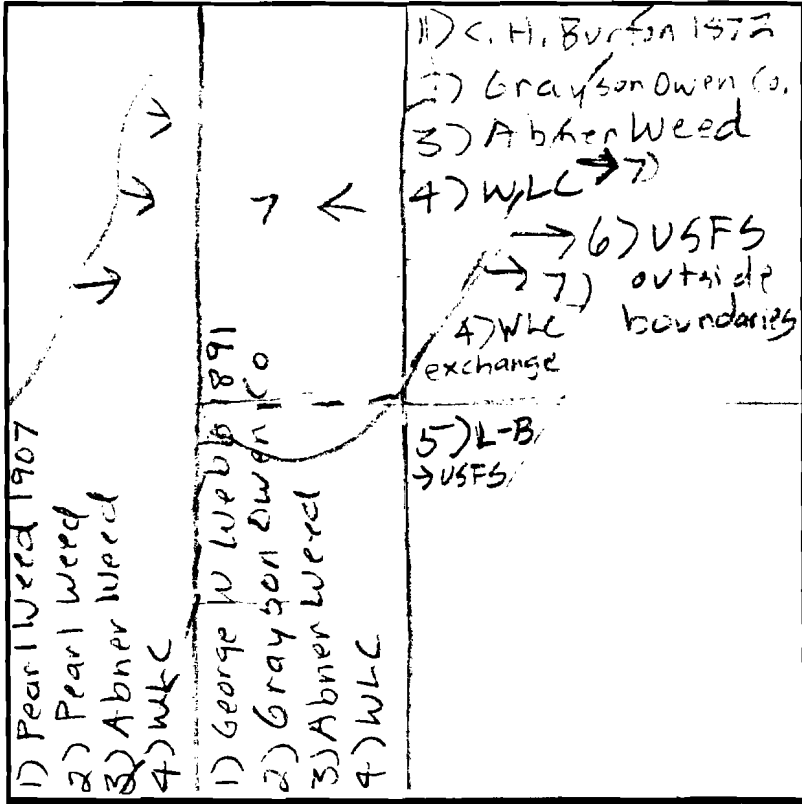 1) C. H. Burton 1872
2) Grayson Owen Co.
3) Abner Weed
4) WLC → 7)
→ 6) USFS
outside
boundaries
→ 7)
4) WLC
exchange
5) L-B
→ USFS
1) Pearl Weed 1907
2) Pearl Weed
3) Abner Weed
4) WLC
1) George W Webb 1891
2) Grayson Owen Co
3) Abner Weed
4) WLC